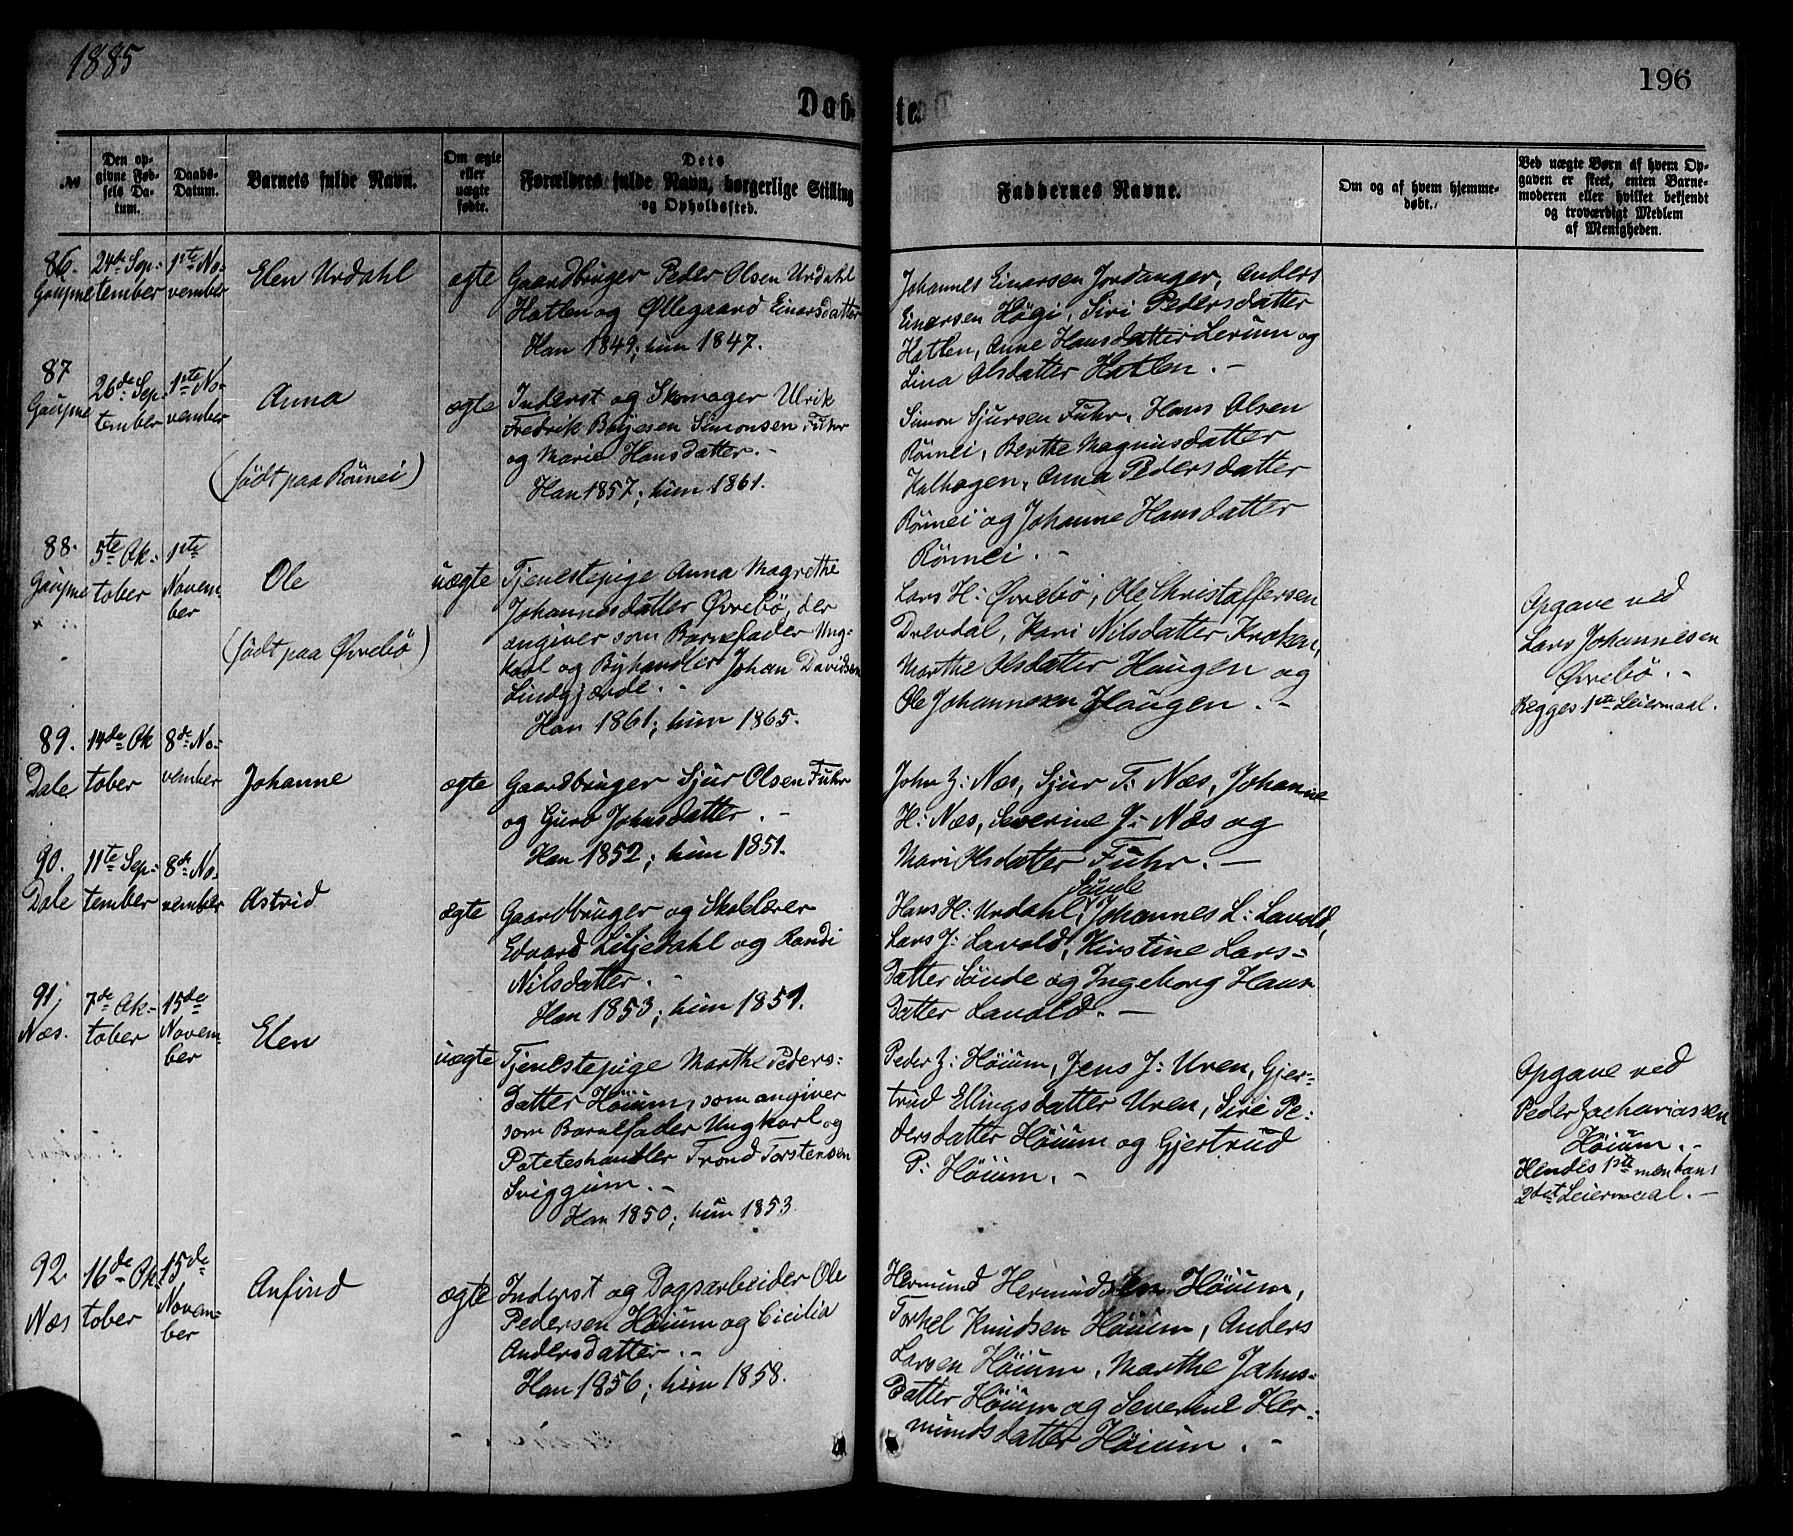 1885
196
Døbte.
№
Den op-
givne Fød-
sels Da-
tum.
Daabs-
Datum.
Barnets fulde Navn.
Om ægte
eller
uægte
født.
Dets
Forældres fulde Navn, borgerlige Stilling
og Opholdssted.
Faddernes Navne.
Om og af hvem hjemme-
døbt.
Ved uægte Børn af hvem Op-
gaven er skeet, enten Barne-
moderen eller hvilket bekjendt
og troværdigt Medlem
af Menigheden.
86.
Gaupne
24de Sep-
tember
1ste No-
vember
Elen Urdahl
ægte
Gaardbruger Peder Olsen Urdahl
Hatlen og Øllegaard Einarsdatter
Han 1849; hun 1847.
Johannes Einersen Jordanger, Anders
Einersen Høgi, Siri Pedersdatter
Hatlen, Anne Hansdatter Lerum og
Lina Olsdatter Hatlen. -
87
Gaupne
26de Sep-
tember
1ste No-
vember
Anna
(født paa Rømei)
ægte
Inderst og Skomager Ulrik
Fredrik Bøyesen Simonsen Fuhr
og Marie Hansdatter. -
Han 1857; hun 1861.
Simon Sjursen Fuhr, Hans Olsen
Rømei, Berthe Magnusdatter
Kalhagen, Anna Pedersdatter
Rømei og Johanne Hansdatter
Rømei. -
88.
Gaupne
5te Ok-
tober
1ste
Novem-
ber
Ole
(født paa Øvrebø)
uægte
Tjenestepige Anna Magrethe
Johannesdatter Øvrebø, der
angiver som Barnefader Ung-
karl og Byhandler Johan Davidsen
Lindgjærde. -
Han 1861; hun 1865.
Lars H: Øvrebø, Ole Christaffersen
Drevdal, Kari Nilsdatter Kroken,
Marthe Olsdatter Haugen og
Ole Johannesen Haugen. -
Opgave ved
Lars Johannesen
Øvrebø. -
Begges 1ste Leiermaal.
89.
Dale
14de Ok
tober
8de No-
vember
Johanne
ægte
Gaardbruger Sjur Olsen Fuhr
og Guro Johnsdatter. -
Han 1852; hun 1851.
John Z: Næs, Sjur T: Næs, Johanne
H: Næs, Severine J: Næs og
Mari Olsdatter Fuhr. -
90.
Dale
11te Sep-
tember
8de No-
vember
Astrid
ægte
Gaardbruger og Skolelærer
Edvard Liljedahl og Randi
Nilsdatter. -
Han 1853; hun 1851.
Søvde
Hans H: Urdahl, Johannes L: Lavold,
Lars J: Lavold, Kirstine Lars-
datter Søvde og Ingeborg Hans
datter Lavold. -
91,
Næs.
7de Ok-
tober
15de
Novem-
ber
Elen
uægte
Tjenestepige Marthe Peders-
datter Høium, som angiver
som Barnefader Ungkarl og
Poteteshandler Trond Torstensen
Sviggum. -
Han 1850; hun 1853
Peder Z: Høium, Jens J: Uren, Gjer-
trud Ellingsdatter Uren, Siri Pe-
dersdatter Høium og Gjertrud
P: Høium. -
Opgave ved
Peder Zachariassen
Høium. -
Hendes 1ste men hans
2det Leiermaal. -
92.
Næs
16de Ok
tober
15de
Novem-
ber
Anfind
ægte
Inderst og Dagsarbeider Ole
Pedersen Høium og Cicilia
Andersdatter. -
Han 1856; hun 1858.
Hermund Hermundsen Høium,
Torkel Knudsen Høium, Anders
Larsen Høium, Marthe Johns-
datter Høium og Severine Her-
mundsdatter Høium. -